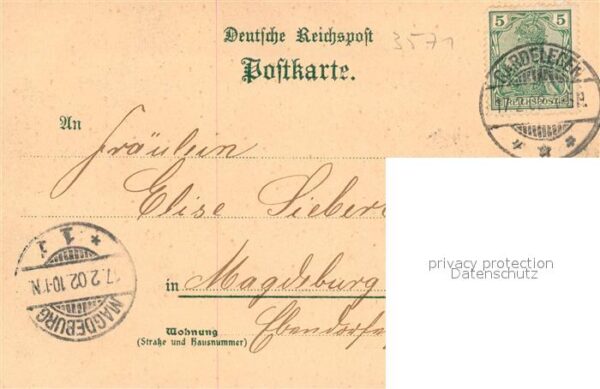 Deutsche Reichspost
3571
Postkarte.
5 5
REICHSPOST
GARDELEGEN
17.2.
An
Fräulein
Elise Siebert
in Magdeburg
Wohnung
(Straße und Hausnummer)
MAGDEBURG
17.2.02.10-11N.
* 1
privacy protection
Datenschutz